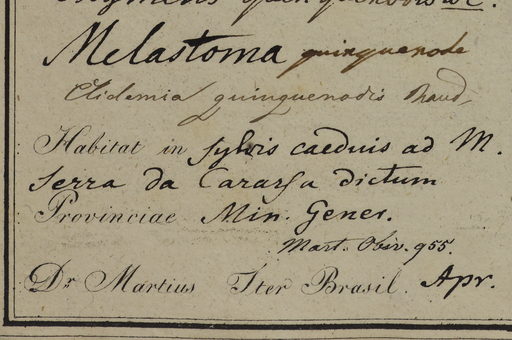 Melastoma quinquenode
Clidemia quinquenodis Naud,
Habitat in sylvis caeduis ad M.
Serra da Carassa dictum
Provinciae Min. Genes.
Mart. Obsv. 955.
Dr Martius Iter Brasil. Apr.